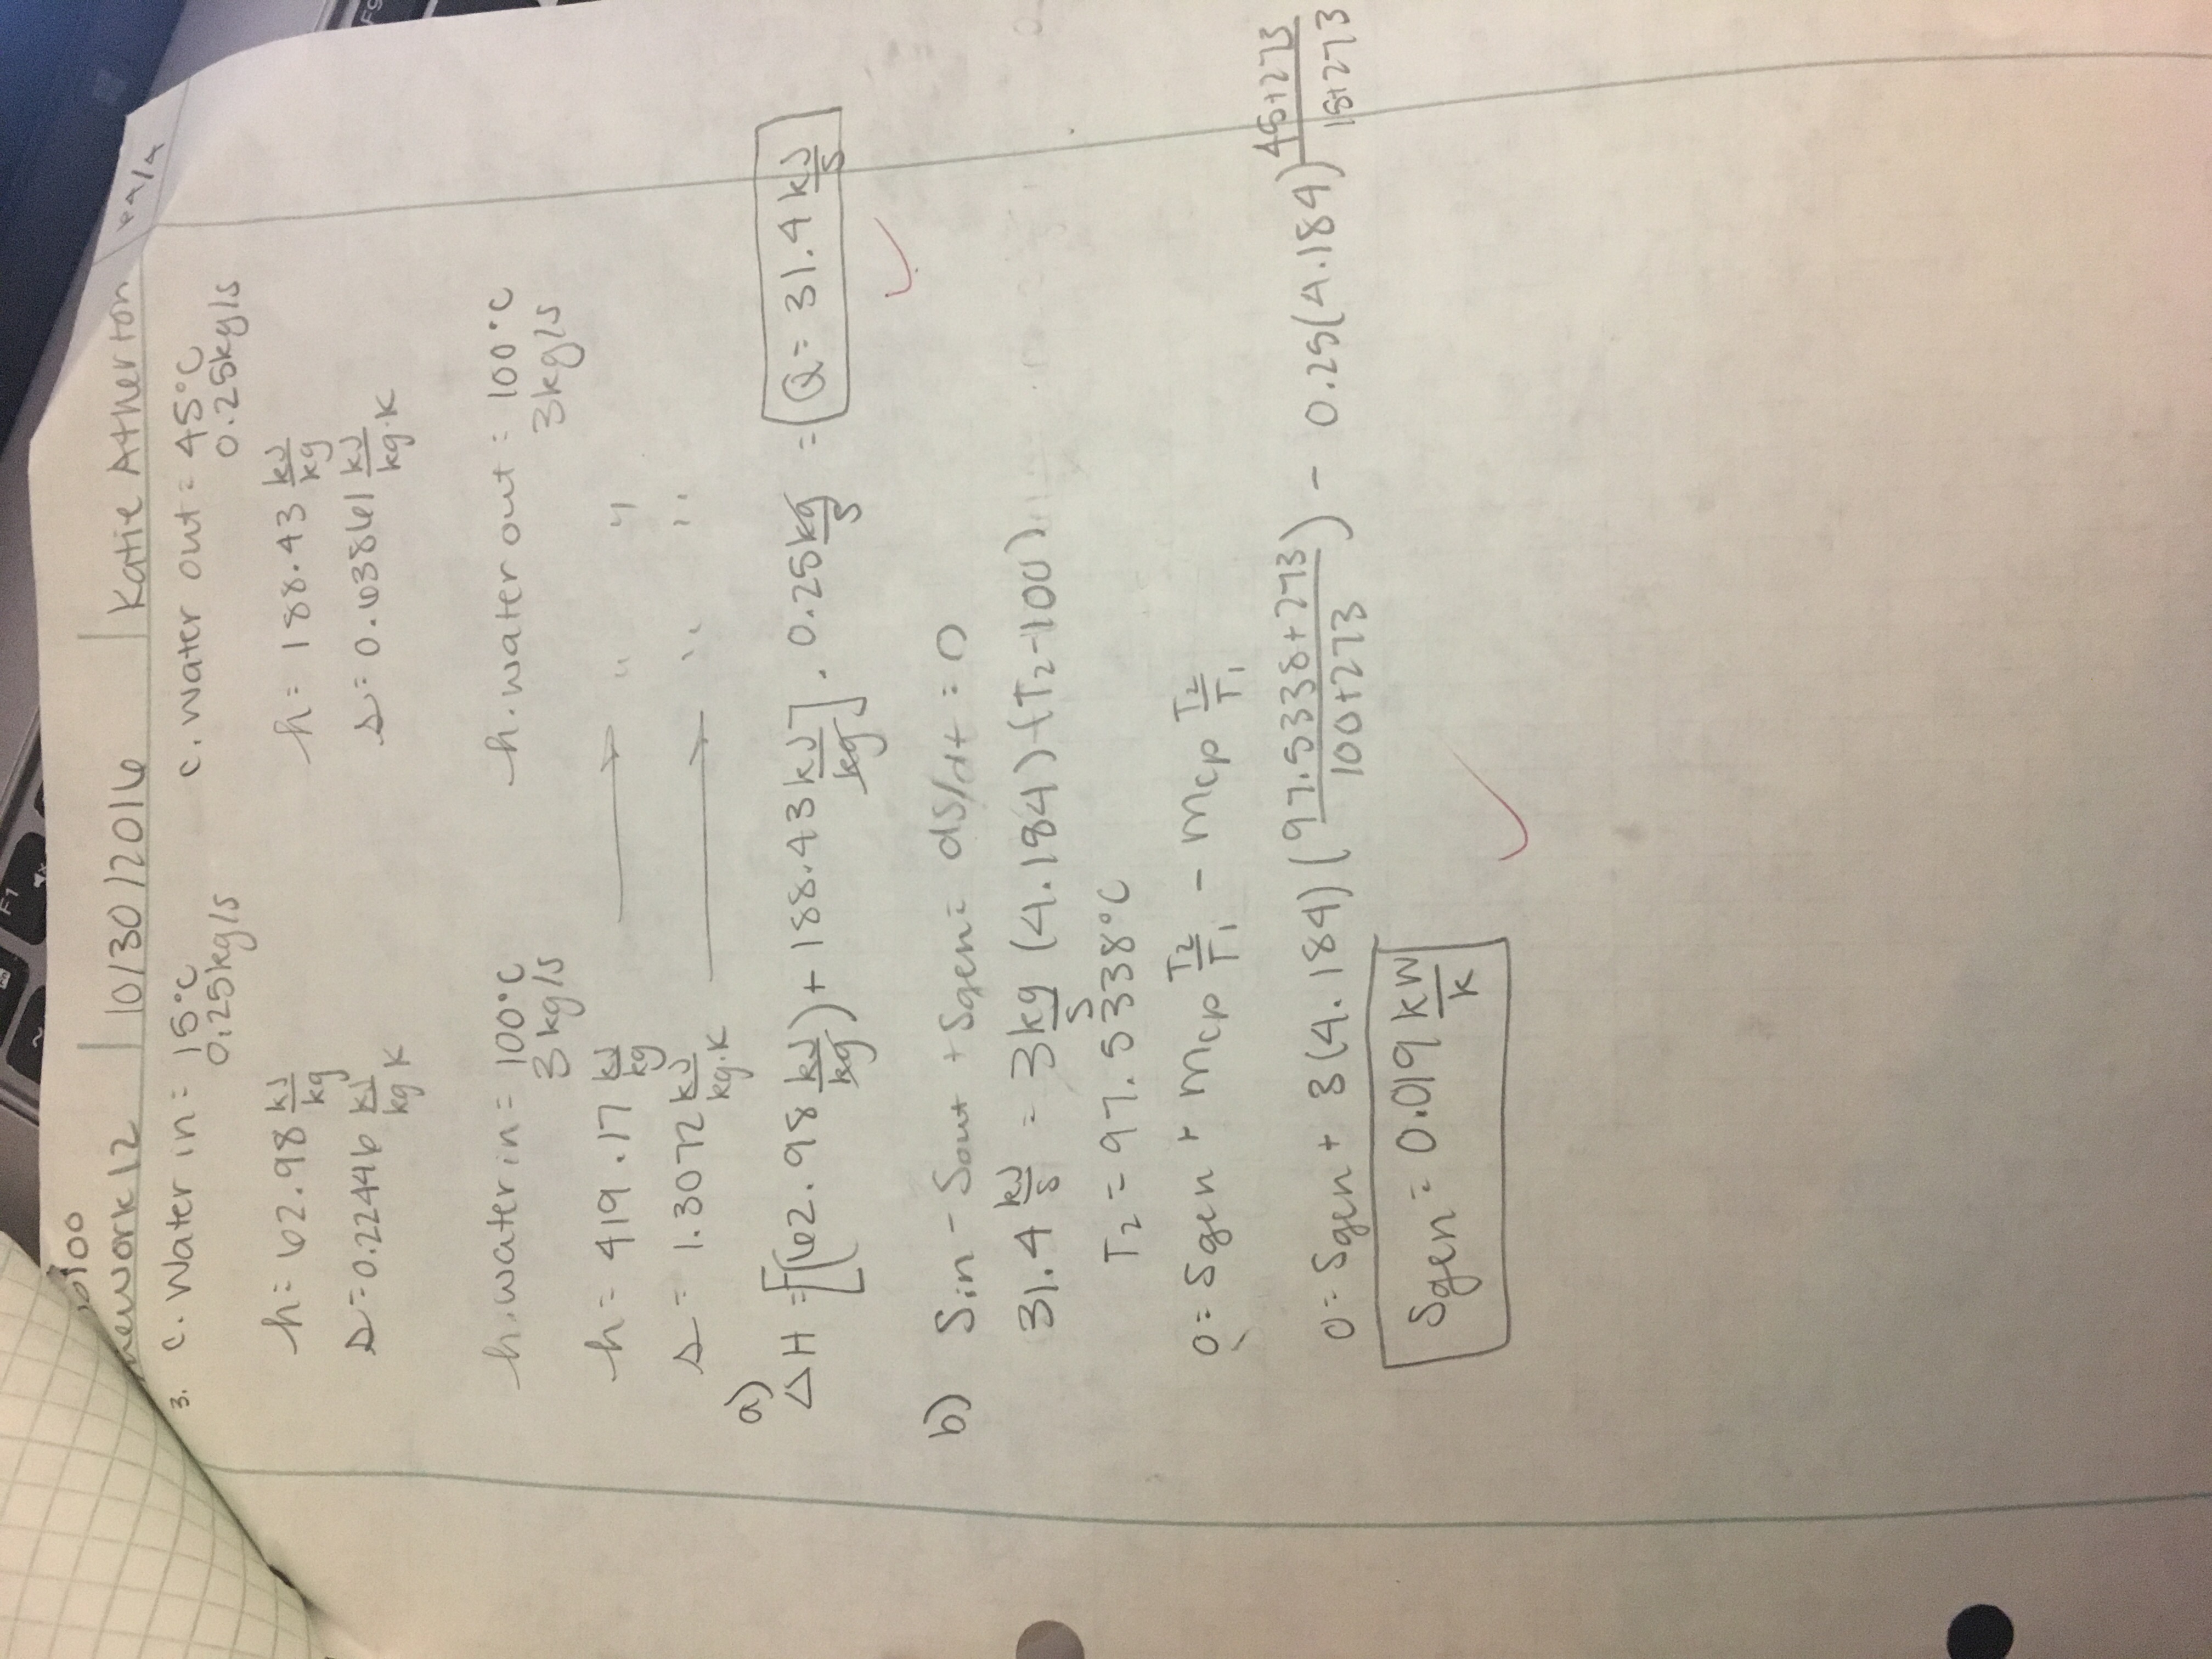 0100
ework 12 | 10/30/2016 | Katie Atherton
3. C. Water in = 15°C c. water out = 45°C
0.25kg/s 0.25kg/s
h = 62.98 kJ/kg h = 188.43 kJ/kg
s = 0.22446 kJ/kg K s = 0.63861 kJ/kg·K
h. water in = 100°C h. water out = 100°C
3 kg/s 3kg/s
h = 419.17 kJ/kg → " "
s = 1.3072 kJ/kg·K → " "
a)
ΔH = [(62.98 kJ/kg) + 188.43 kJ/kg] · 0.25 kg/s = Q = 31.4 kJ/s
b) Sin - Sout + Sgen = dS/dt = 0
31.4 kJ/s = 3 kg/s (4.184) (T2-100)
T2 = 97.5338°C
0 = Sgen + mcp T2/T1 - mcp T2/T1
0 = Sgen + 3(4.184) (97.5338+273/100+273) - 0.25(4.184) 45+273/15+273
Sgen = 0.019 kW/K
F1
F9